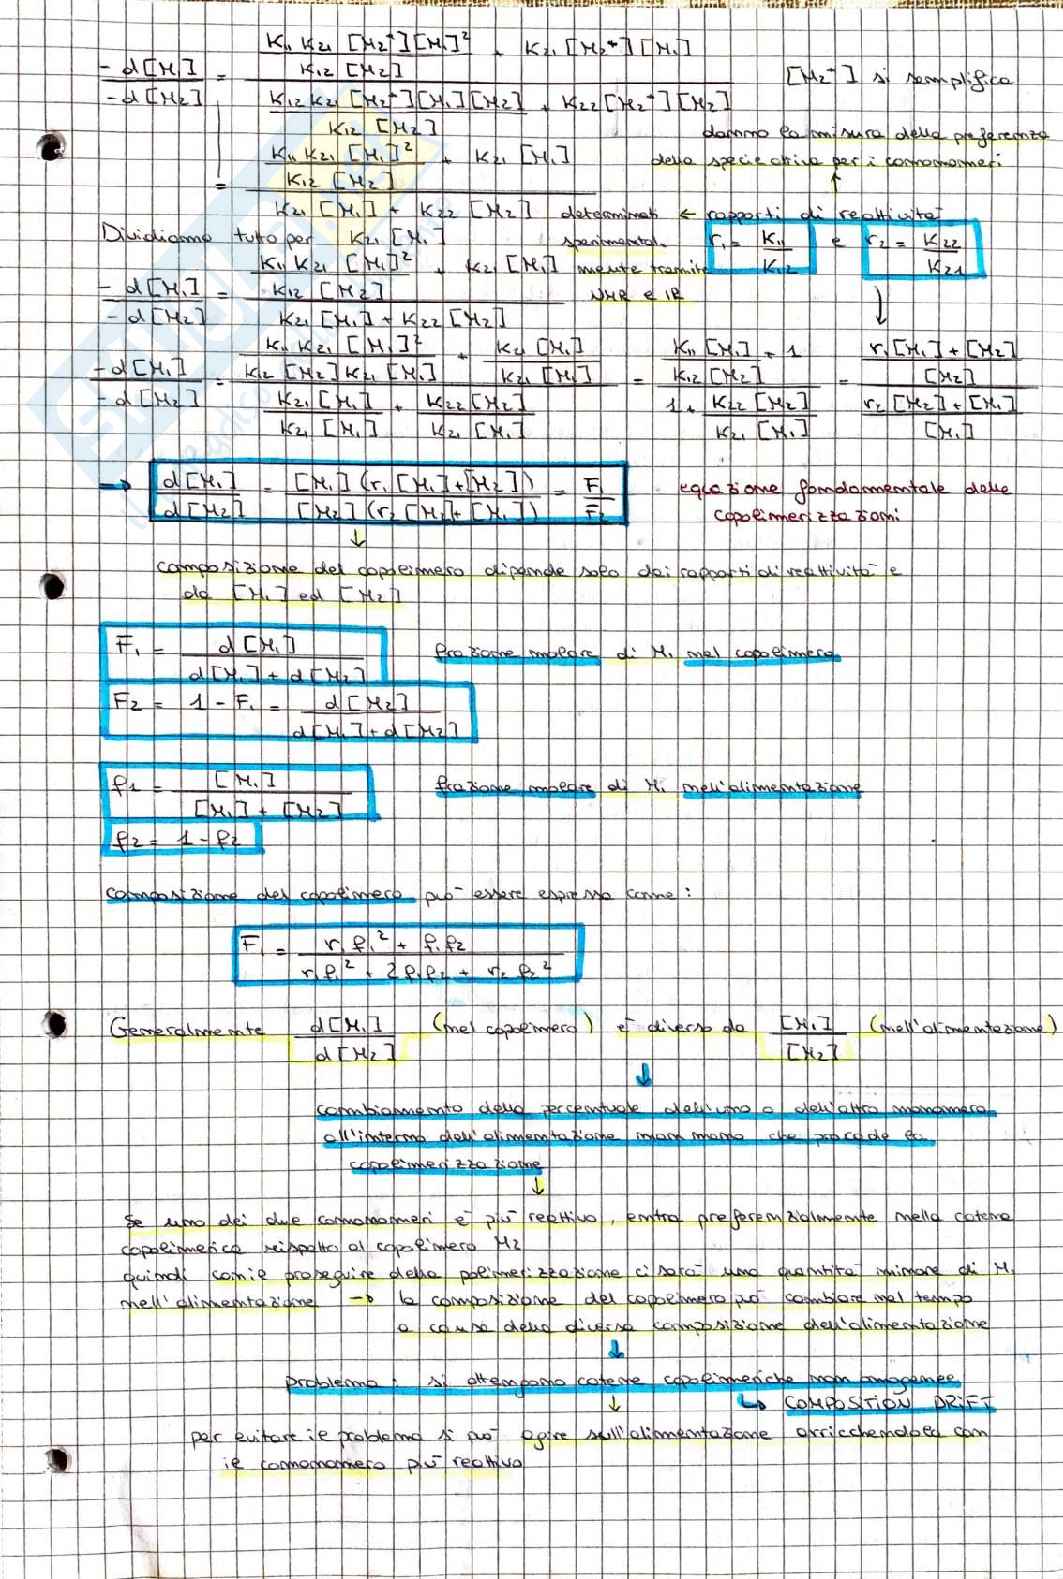 -d[M₁]/-d[M₂] = (K₁₁ K₂₁ [M₂⁺][M₁]²/K₁₂ [M₂] + K₂₁ [M₂⁺][M₁]) / (K₁₂ K₂₁ [M₂⁺][M₁][M₂]/K₁₂ [M₂] + K₂₂ [M₂⁺][M₂])
[M₂⁺] si semplifica
= (K₁₁ K₂₁ [M₁]²/K₁₂ [M₂] + K₂₁ [M₁]) / (K₂₁ [M₁] + K₂₂ [M₂])
danno la misura della preferenza
della specie attiva per i comonomeri
↑
determinati ← rapporti di reattività
sperimental. r₁ = K₁₁/K₁₂ e r₂ = K₂₂/K₂₁
mente tramite
NMR e IR
Dividiamo tutto per K₂₁ [M₁]
-d[M₁]/-d[M₂] = (K₁₁ K₂₁ [M₁]²/K₁₂ [M₂] + K₂₁ [M₁]) / (K₂₁ [M₁] + K₂₂ [M₂])
-d[M₁]/-d[M₂] = (K₁₁ K₂₁ [M₁]²/K₁₂ [M₂] K₂₁ [M₁] + K₂₁ [M₁]/K₂₁ [M₁]) / (K₂₁ [M₁]/K₂₁ [M₁] + K₂₂ [M₂]/K₂₁ [M₁]) = (K₁₁ [M₁]/K₁₂ [M₂] + 1) / (1 + K₂₂ [M₂]/K₂₁ [M₁]) = (r₁[M₁] + [M₂]/[M₂]) / (r₂[M₂] + [M₁]/[M₁])
→ d[M₁]/d[M₂] = [M₁] (r₁ [M₁] + [M₂]) / [M₂] (r₂ [M₂] + [M₁]) = F₁/F₂ equazione fondamentale delle
copolimerizzazioni
↓
composizione del copolimero dipende solo dai rapporti di reattività e
da [M₁] ed [M₂]
F₁ = d[M₁] / d[M₁] + d[M₂] frazione molare di M₁ nel copolimero
F₂ = 1 - F₁ = d[M₂] / d[M₁] + d[M₂]
f₁ = [M₁] / [M₁] + [M₂] frazione molare di M₁ nell'alimentazione
f₂ = 1 - f₂
composizione del copolimero può essere espressa come:
F₁ = r₁f₁² + f₁f₂ / r₁f₁² + 2f₁f₂ + r₂f₂²
Generalmente d[M₁]/d[M₂] (nel copolimero) è diverso da [M₁]/[M₂] (nell'alimentazione)
↓
cambiamento della percentuale dell'uno o dell'altro monomero
all'interno dell'alimentazione man mano che procede la
copolimerizzazione
↓
Se uno dei due comonomeri è più reattivo, entra preferenzialmente nella catena
copolimerica rispetto al copolimero M₂
quindi con il proseguire della polimerizzazione ci sarà una quantità minore di M₁
nell'alimentazione → la composizione del copolimero può cambiare nel tempo
a causa della diversa composizione dell'alimentazione
↓
problema: si ottengono catene copolimeriche non omogenee
↓ ↳ COMPOSITION DRIFT
per evitare il problema si può agire sull'alimentazione arricchendola con
il comonomero più reattivo